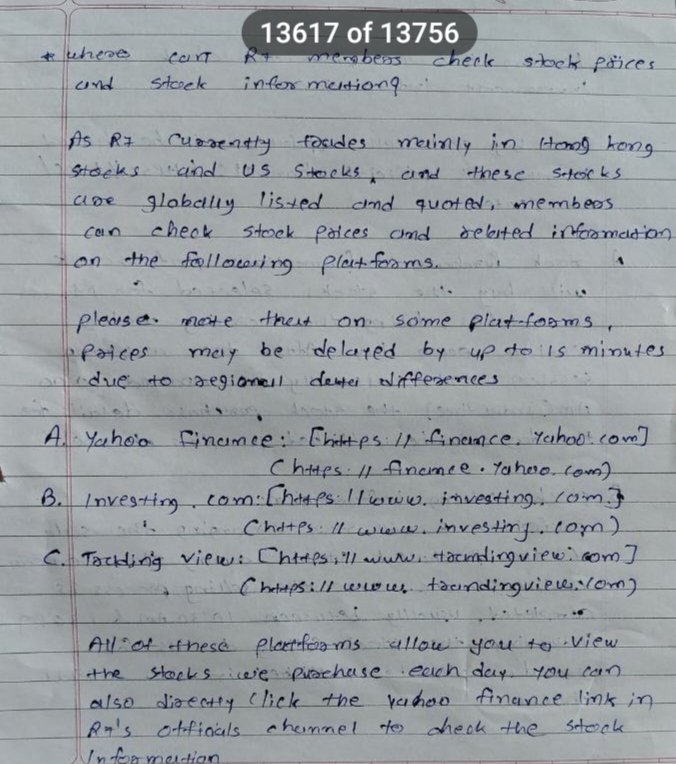 13617 of 13756
* where can R7 members check stock prices
and stock information?
As R7 currently trades mainly in Hong kong
stocks and US stocks, and these stocks
are globally listed and quoted, members
can check stock prices and related information
on the following platforms.
please note that on some platforms,
prices may be delayed by up to 15 minutes
due to regional data differences
A. Yahoo finance: [https://finance.Yahoo.com]
(https://finance.Yahoo.com)
B. Investing.com: [https://www.investing.com]
(https://www.investing.com)
C. Trading view: [https://www.trandingview.com]
(https://www.trandingview.com)
All of these platforms allow you to view
the stocks we purchase each day. you can
also directly click the yahoo finance link in
R7's officials channel to check the stock
Information